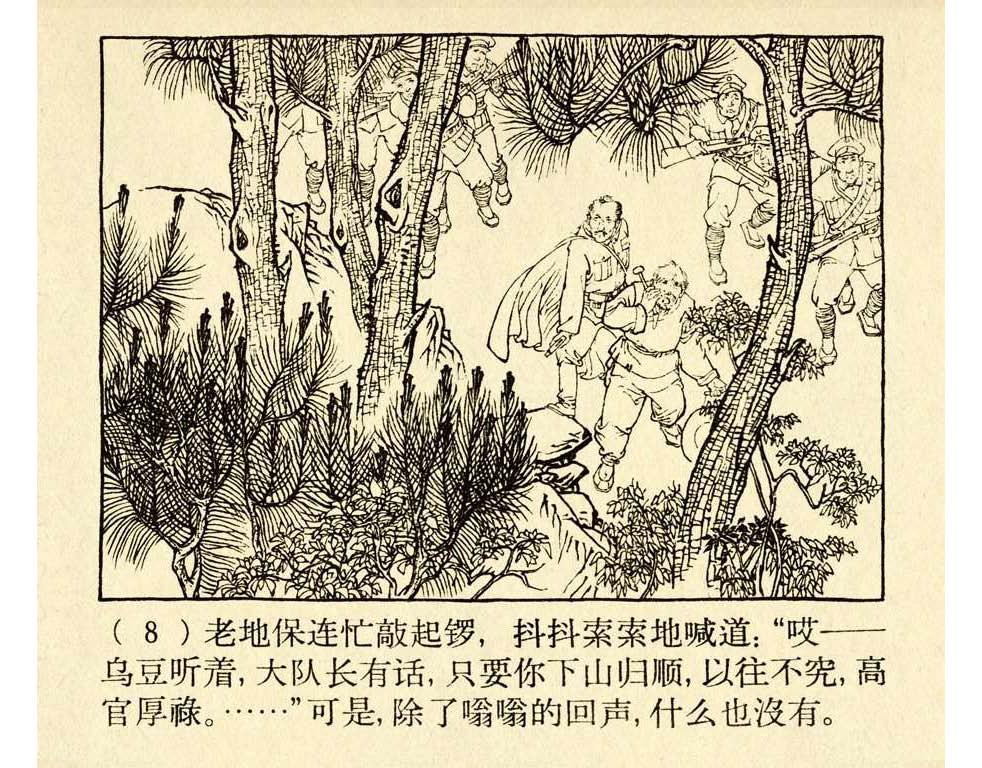 （8）老地保连忙敲起锣，抖抖索索地喊道：“哎——
乌豆听着，大队长有话，只要你下山归顺，以往不究，高
官厚祿。……”可是，除了嗡嗡的回声，什么也沒有。